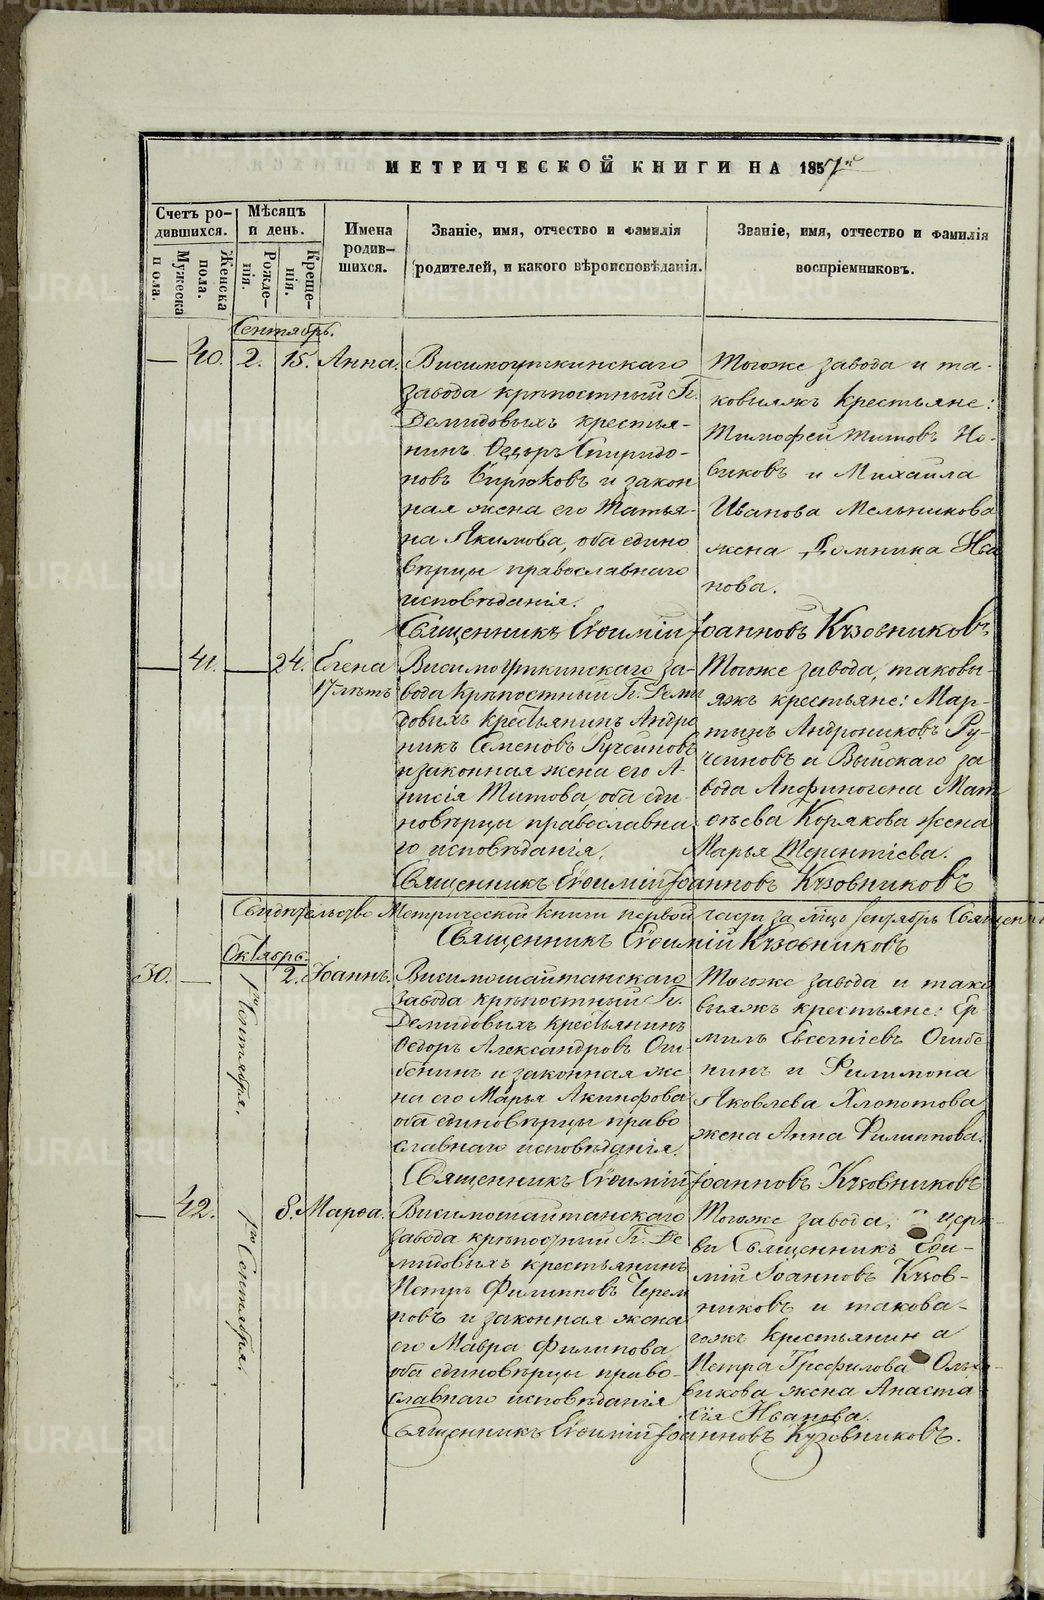 МЕТРИЧЕСКОЙ КНИГИ НА 1857й
Счетъ родившихся.
Мужеска пола.
Женска пола.
Мѣсяцъ и день.
Рожденія.
Крещенія.
Имена родившихся.
Званіе, имя, отчество и фамилія родителей, и какого вѣроисповѣданія.
Званіе, имя, отчество и фамилія воспріемниковъ.
Сентябрь.
— 40. 2. 15. Анна.
Висимоуткинскаго
завода крѣпостный Г.
Демидовыхъ крестья-
нинъ Ѳедоръ Спиридо-
новъ Бирюковъ и закон
ная жена его Татья-
на Якимова, оба едино
вѣрцы православнаго
исповѣданія.
Тогоже завода и та-
ковыяжъ крестьяне:
Тимофей Титовъ Но-
виковъ и Михаила
Иванова Мельникова
жена Домника Ива
нова.
Священникъ Евѳимій Іоанновъ Кузовниковъ
— 41. — 24. Елена
17 лѣтъ
Висимоуткинскаго за-
вода крѣпостный Г. Деми
довыхъ крестьянинъ Андро
никъ Семеновъ Ручейновъ
и законная жена его А-
нисія Титова, оба еди-
новѣрцы православна
го исповѣданія.
Тогоже завода, таковы-
яжъ крестьяне: Мар-
тинъ Андрониковъ Ру-
чейновъ и Выйскаго за
вода Анфиногена Мат
вѣева Корякова жена
Марья Терентіева.
Священникъ Евѳимій Іоанновъ Кузовниковъ
Свидѣтельство Метрической книги первой части за мцъ Сентябрь Священ
Священникъ Евѳимій Кузовниковъ
Октябрь.
30. — 1го Сентября. 2. Іоаннъ.
Висимошайтанскаго
завода крѣпостный Г.
Демидовыхъ крестьянинъ
Ѳедоръ Александровъ Оши
бенинъ и законная же
на его Марья Акинфова
оба единовѣрцы право
славнаго исповѣданія.
Тогоже завода и тако
выяжъ крестьяне: Ер-
милъ Евсегніевъ Ошибе
нинъ и Филимона
Яковлева Хлопотова
жена Анна Филиппова.
Священникъ Евѳимій Іоанновъ Кузовниковъ
— 42. 1го Сентября. 8. Марѳа.
Висимошайтанскаго
завода крѣпостный Г. Де
мидовыхъ крестьянинъ
Петръ Филипповъ Черем
новъ и законная жена
его Мавра Филипова
оба единовѣрцы право-
славнаго исповѣданія
Тогоже завода, церк-
ви Священникъ Евѳи-
мій Іоанновъ Кузов-
никовъ и такова-
гожъ крестьянина
Петра Трефилова
жена Анаста
сія Иванова.
Священникъ Евѳимій Іоанновъ Кузовниковъ.
METRIKI.GASO-URAL.RU